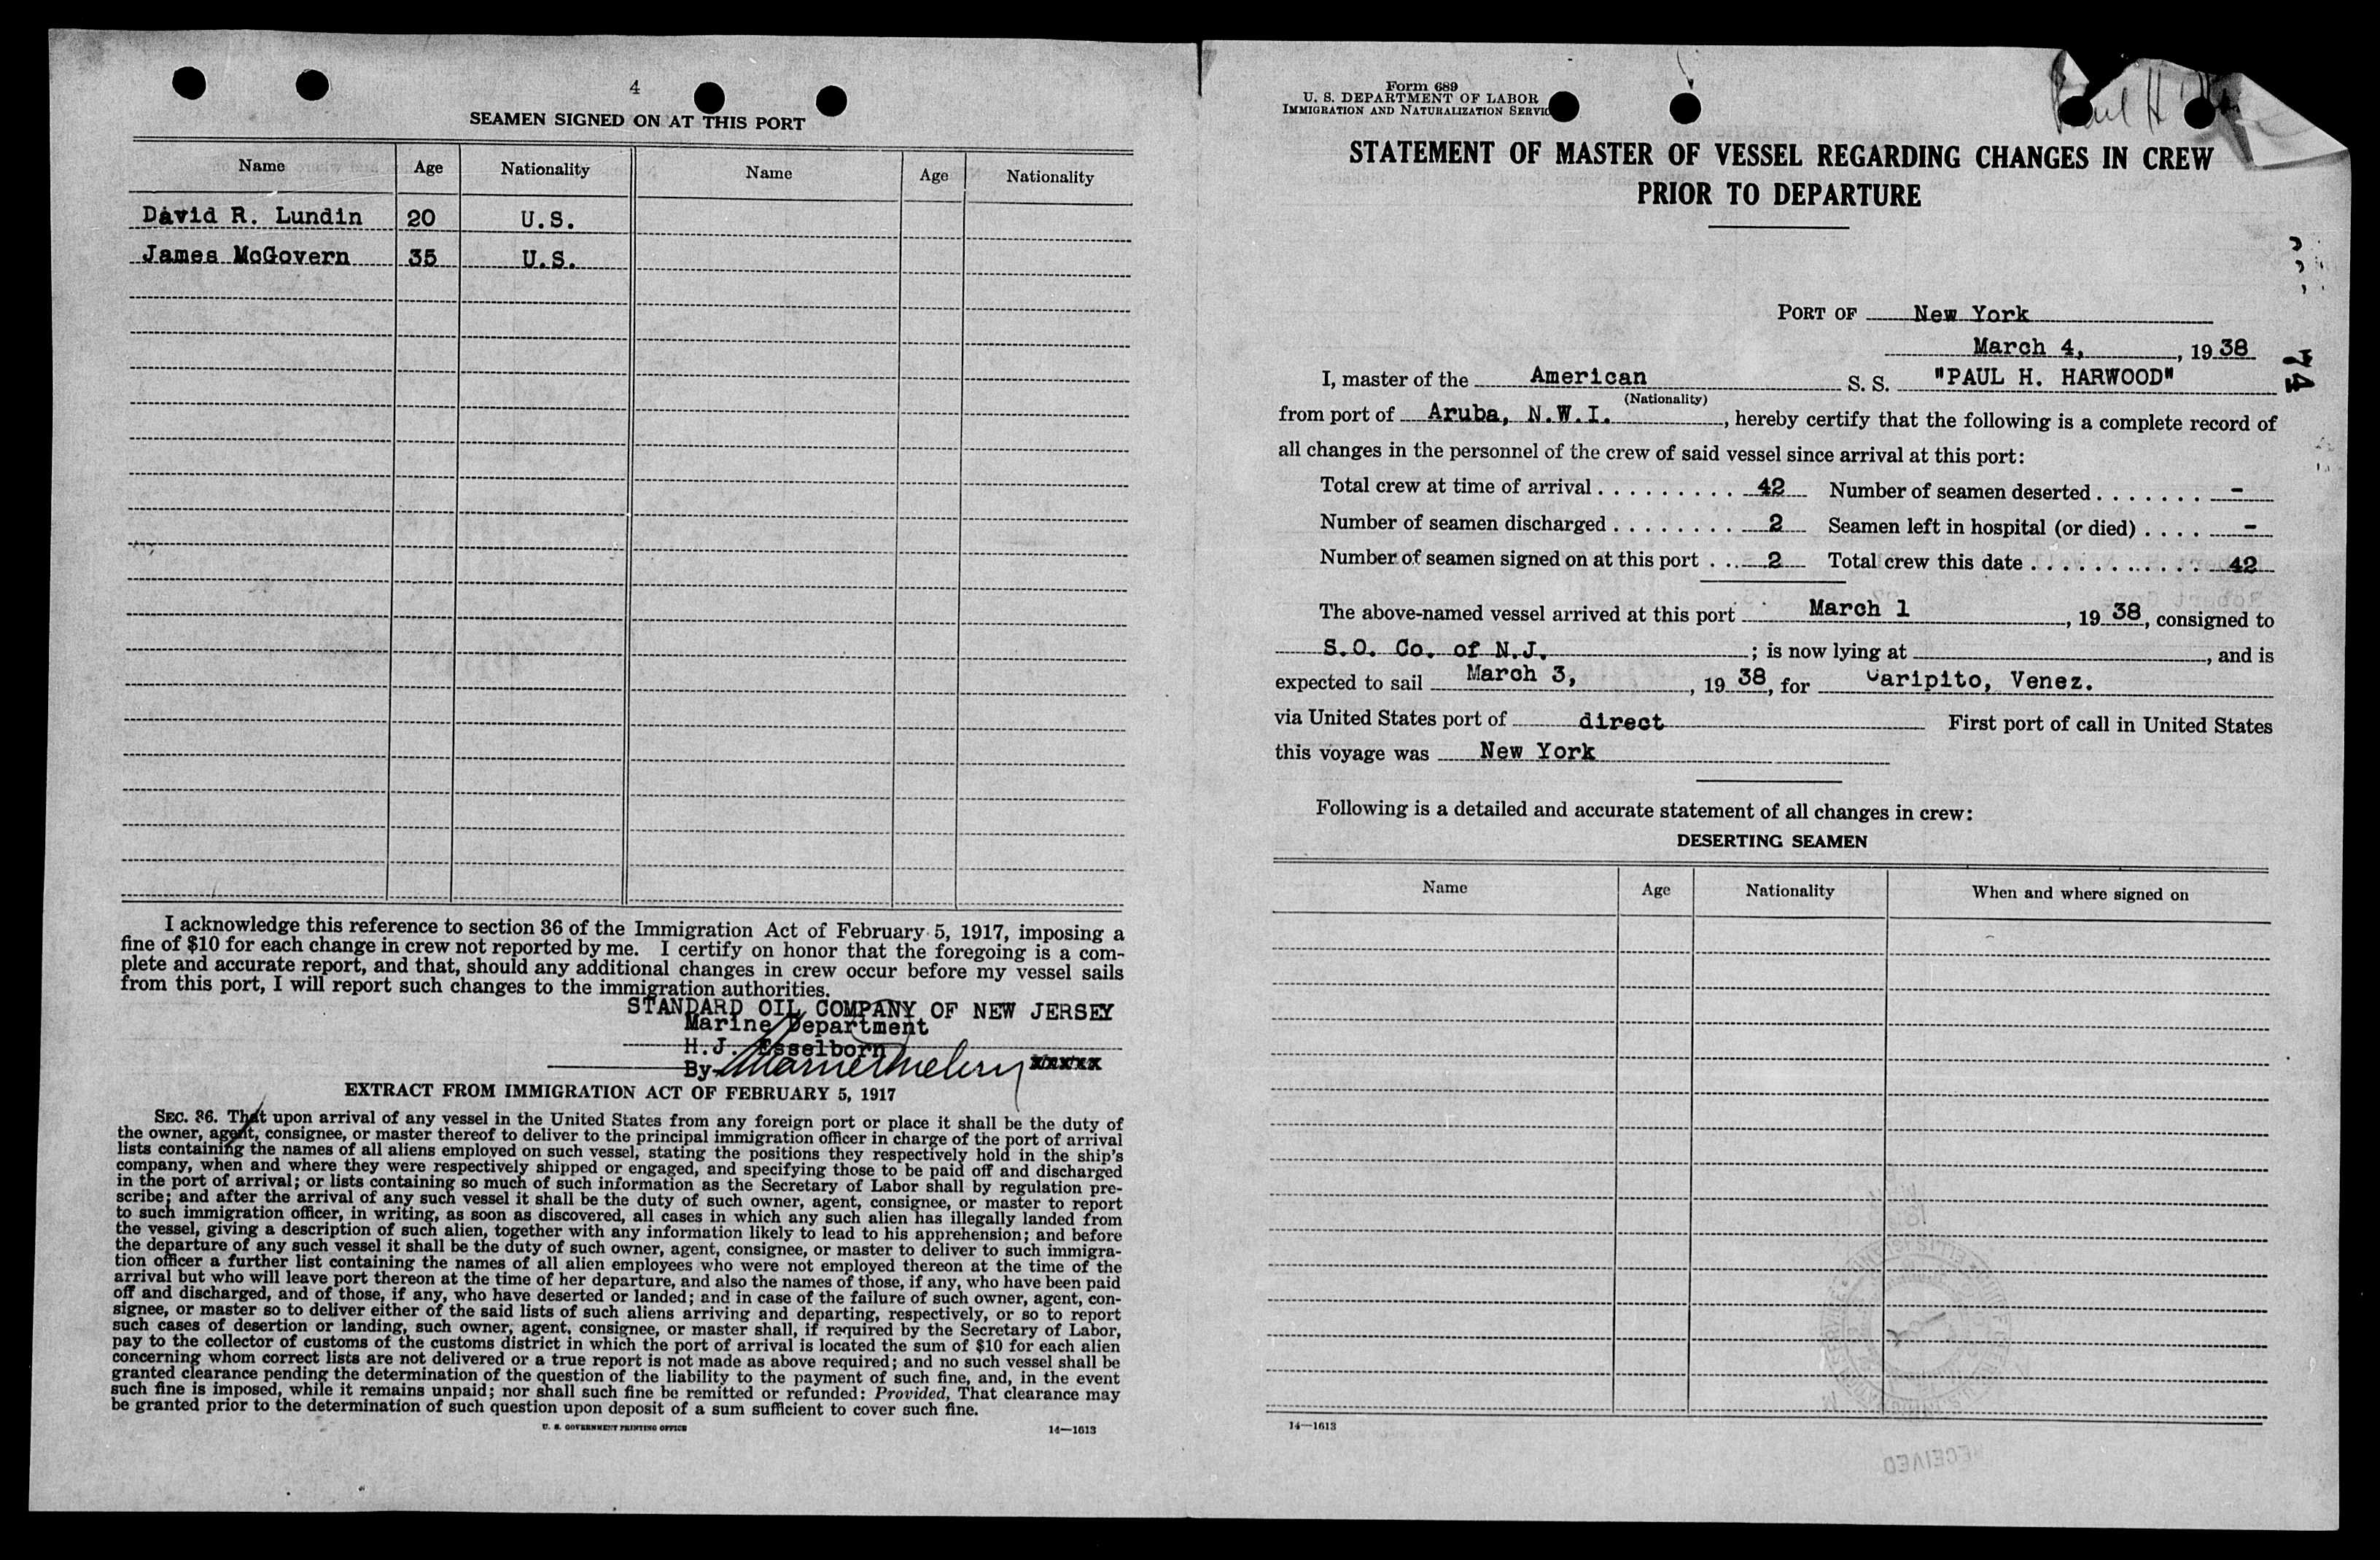 4
SEAMEN SIGNED ON AT THIS PORT
Name Age Nationality Name Age Nationality
David R. Lundin 20 U.S.
James McGovern 35 U.S.
I acknowledge this reference to section 36 of the Immigration Act of February 5, 1917, imposing a
fine of $10 for each change in crew not reported by me. I certify on honor that the foregoing is a com-
plete and accurate report, and that, should any additional changes in crew occur before my vessel sails
from this port, I will report such changes to the immigration authorities.
STANDARD OIL COMPANY OF NEW JERSEY
Marine Department
H.J. Esselborn
By xxxxx
EXTRACT FROM IMMIGRATION ACT OF FEBRUARY 5, 1917
SEC. 36. That upon arrival of any vessel in the United States from any foreign port or place it shall be the duty of
the owner, agent, consignee, or master thereof to deliver to the principal immigration officer in charge of the port of arrival
lists containing the names of all aliens employed on such vessel, stating the positions they respectively hold in the ship's
company, when and where they were respectively shipped or engaged, and specifying those to be paid off and discharged
in the port of arrival; or lists containing so much of such information as the Secretary of Labor shall by regulation pre-
scribe; and after the arrival of any such vessel it shall be the duty of such owner, agent, consignee, or master to report
to such immigration officer, in writing, as soon as discovered, all cases in which any such alien has illegally landed from
the vessel, giving a description of such alien, together with any information likely to lead to his apprehension; and before
the departure of any such vessel it shall be the duty of such owner, agent, consignee, or master to deliver to such immigra-
tion officer a further list containing the names of all alien employees who were not employed thereon at the time of the
arrival but who will leave port thereon at the time of her departure, and also the names of those, if any, who have been paid
off and discharged, and of those, if any, who have deserted or landed; and in case of the failure of such owner, agent, con-
signee, or master so to deliver either of the said lists of such aliens arriving and departing, respectively, or so to report
such cases of desertion or landing, such owner, agent, consignee, or master shall, if required by the Secretary of Labor,
pay to the collector of customs of the customs district in which the port of arrival is located the sum of $10 for each alien
concerning whom correct lists are not delivered or a true report is not made as above required; and no such vessel shall be
granted clearance pending the determination of the question of the liability to the payment of such fine, and, in the event
such fine is imposed, while it remains unpaid; nor shall such fine be remitted or refunded: Provided, That clearance may
be granted prior to the determination of such question upon deposit of a sum sufficient to cover such fine.
U. S. GOVERNMENT PRINTING OFFICE 14—1613
Form 689
U. S. DEPARTMENT OF LABOR
IMMIGRATION AND NATURALIZATION SERVIC
Paul H
STATEMENT OF MASTER OF VESSEL REGARDING CHANGES IN CREW
PRIOR TO DEPARTURE
PORT OF New York
March 4, , 19 38
74
I, master of the American S. S. "PAUL H. HARWOOD"
(Nationality)
from port of Aruba, N.W.I. , hereby certify that the following is a complete record of
all changes in the personnel of the crew of said vessel since arrival at this port:
Total crew at time of arrival . . . . . . . . . 42 Number of seamen deserted . . . . . . . -
Number of seamen discharged . . . . . . . . 2 Seamen left in hospital (or died) . . . . -
Number of seamen signed on at this port . . . 2 Total crew this date . . . . . . . . . . . . 42
The above-named vessel arrived at this port March 1 , 19 38, consigned to
S.O. Co. of N.J. ; is now lying at , and is
expected to sail March 3, , 19 38, for Caripito, Venez.
via United States port of direct First port of call in United States
this voyage was New York
Following is a detailed and accurate statement of all changes in crew:
DESERTING SEAMEN
Name Age Nationality When and where signed on
14—1613